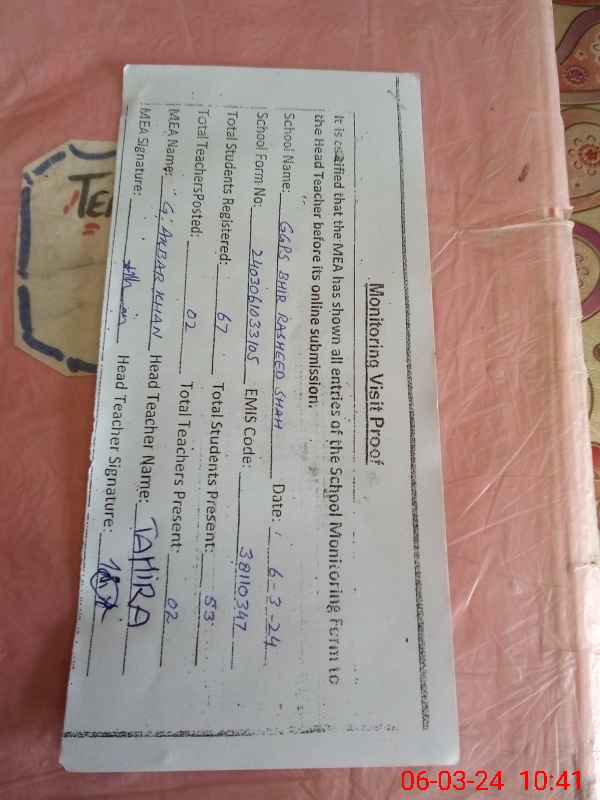 Monitoring Visit Proof
It is certified that the MEA has shown all entries of the School Monitoring Form to
the Head Teacher before its online submission.
School Name: GGPS BHIR RASHEED SHAH Date: 6-3-24
School Form No: 2403061033105 EMIS Code: 38110347
Total Students Registered: 67 Total Students Present: 53
Total TeachersPosted: 02 Total Teachers Present: 02
MEA Name: G. AKBAR KHAN Head Teacher Name: TAHIRA
MEA Signature: Head Teacher Signature:
TE
06-03-24 10:41